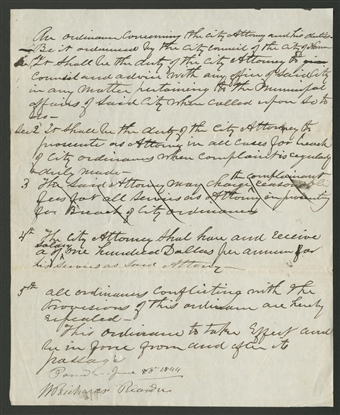 An ordinance Concerning the City Attorney and his duties
Be it ordained by the City Council of the City of
It Shall be the duty of the City Attorney to give
Council and advice with any officer of said City
in any matter pertaining to the Municipal
affairs of Said City when called upon So to
do
Sec 2 It Shall be the duty of the City Attorney to
prosecute as Attorney in all Cases for breach
of City ordinances when complaint is regularly
duly made
3 The Said Attorney may Charge the complainant reasonable
fees for all Services as Attorney in prosecuting
for Breach of City ordinances
4th The City Attorney Shall have and receive
a Salary of One hundred Dollars per annum for
his Services as Said Attorney
5th all ordinances Conflicting with the
provisions of this ordinance are hereby
repealed
This ordinance to take Effect and
be in force from and after its
passage
Passed June
Recorder